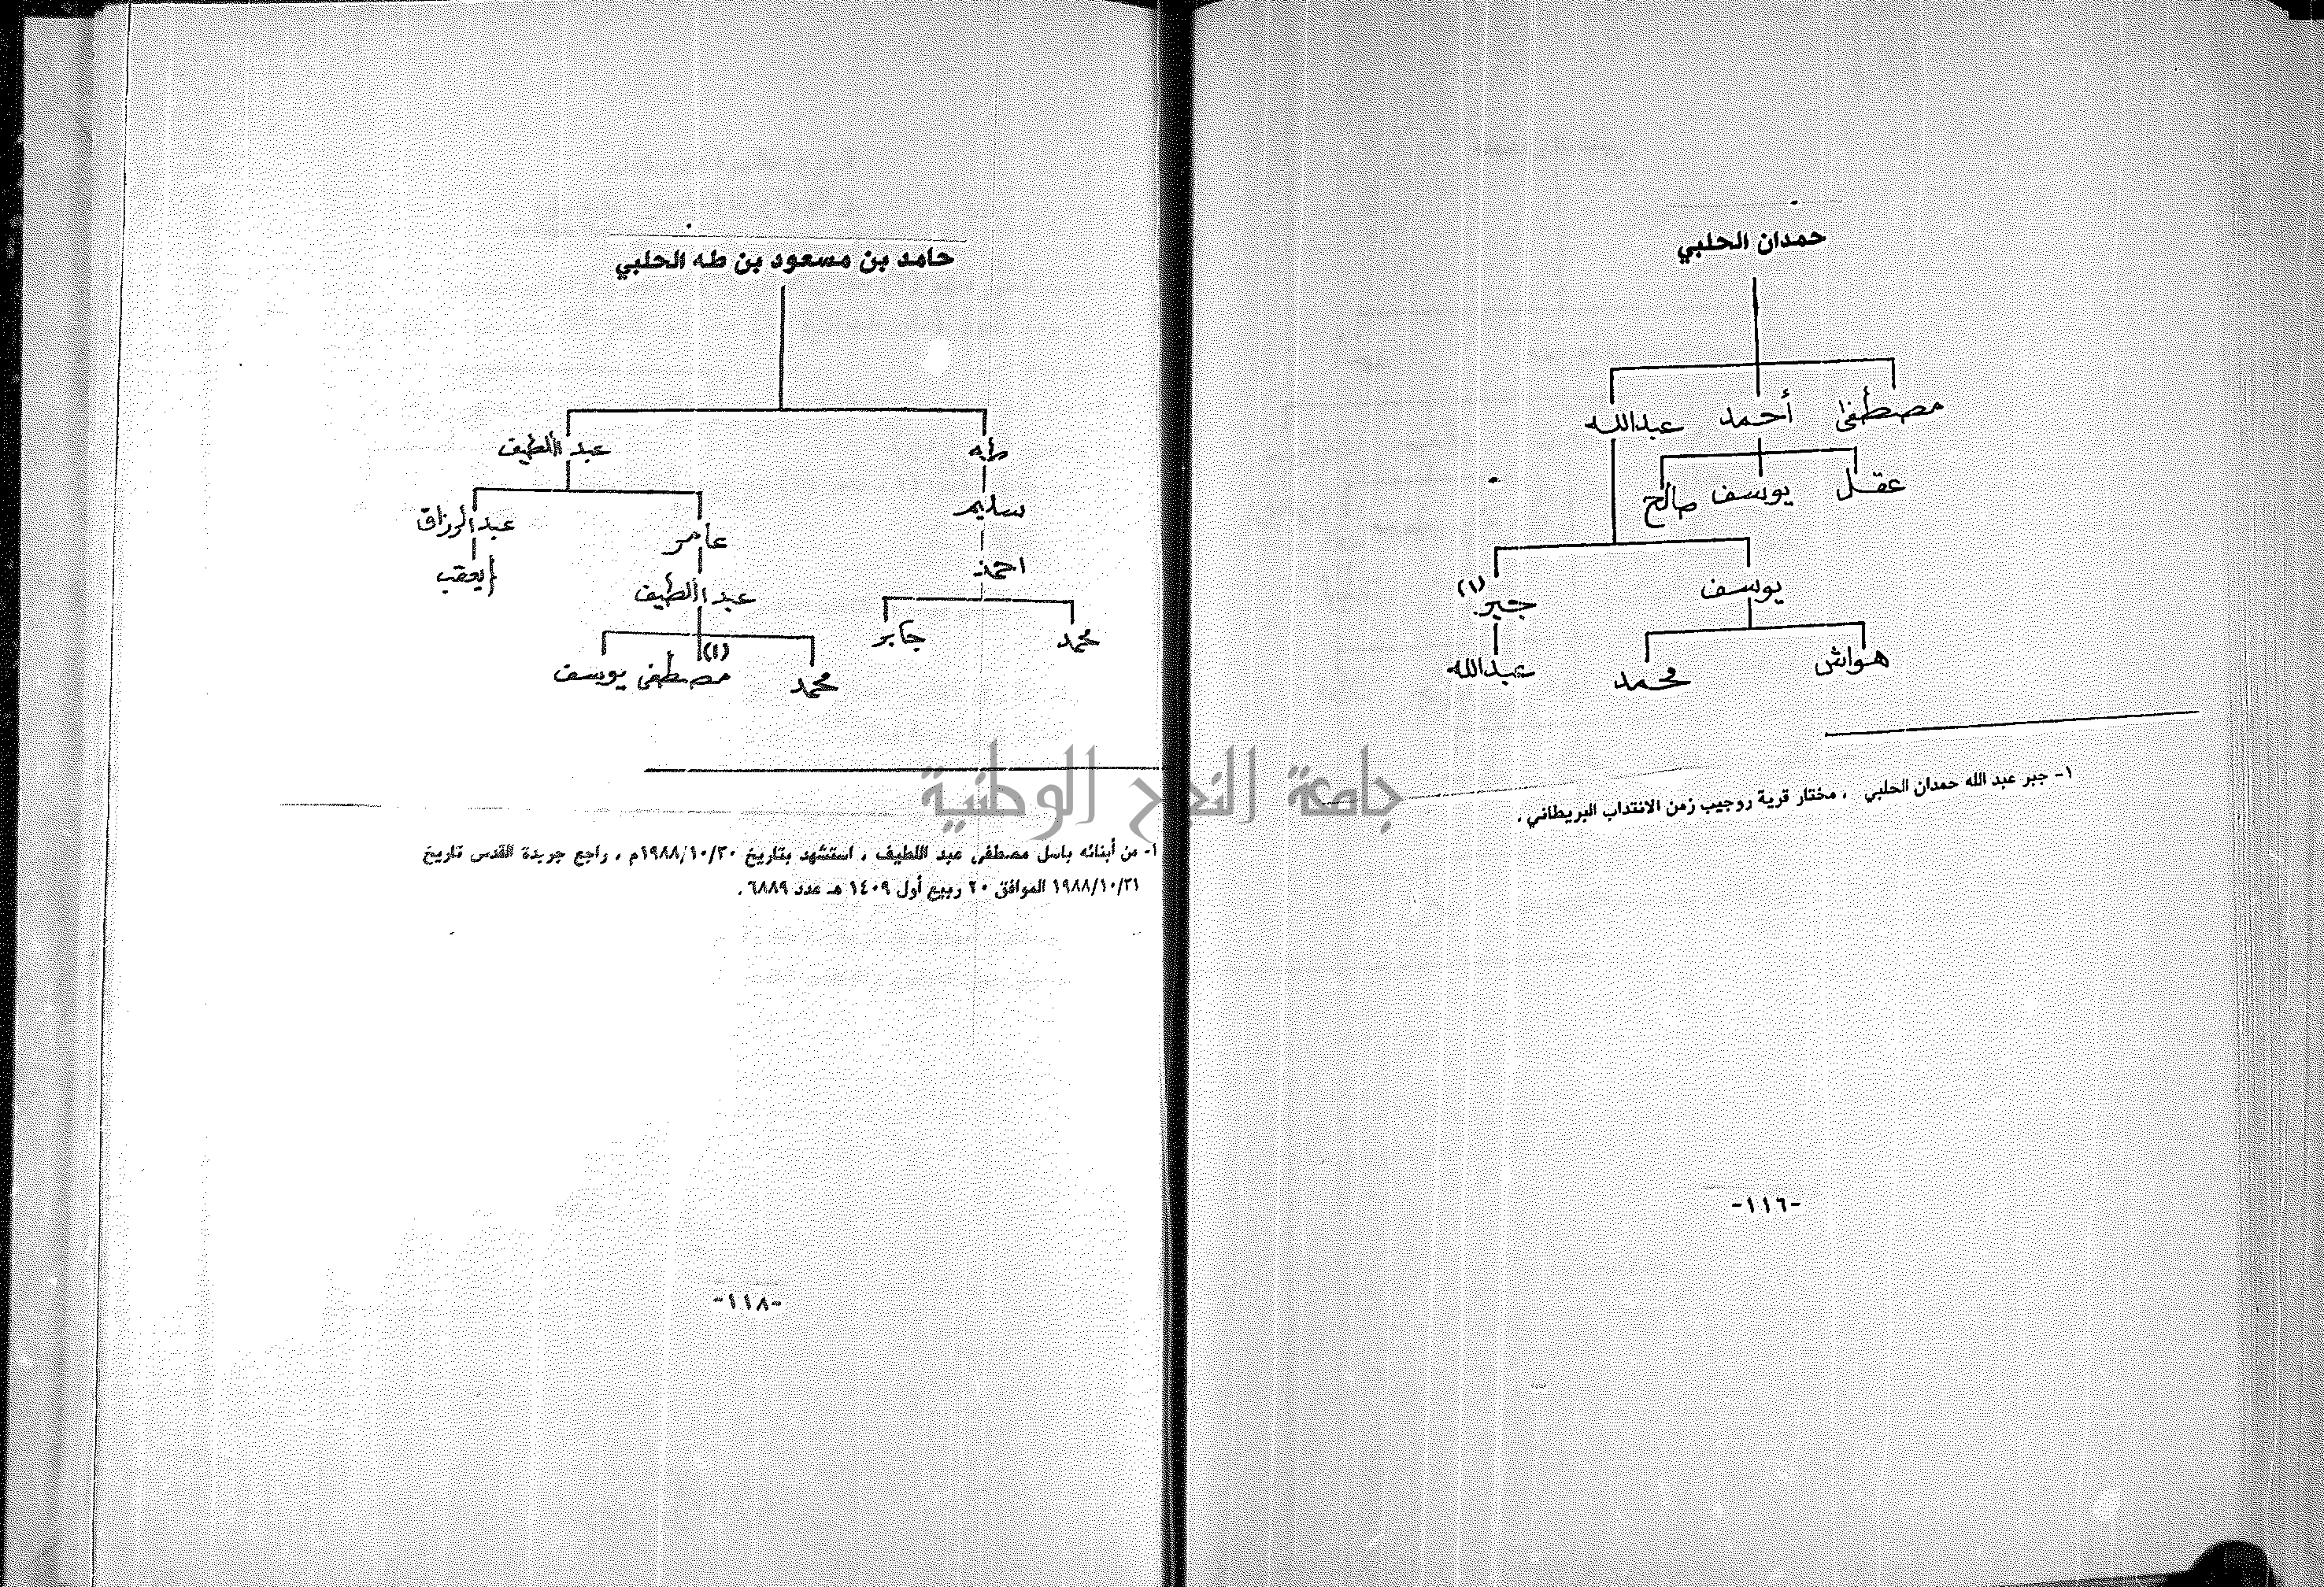 حمدان الحلبي
مصطفى أحمد عبدالله
عقل يوسف صالح
يوسف جبر (١)
هواش محمد عبدالله
١- جبر عبد الله حمدان الحلبي ، مختار قرية روجيب زمن الانتداب البريطاني .
-١١٦-
حامد بن مسعود بن طه الحلبي
طه عبد اللطيف
سليم عامر عبد الرزاق
احمد عبد اللطيف يعقب
محمد جابر محمد مصطفى (١) يوسف
١- من أبنائه باسل مصطفى عبد اللطيف ، استشهد بتاريخ ١٩٨٨/١٠/٣٠م ، راجع جريدة القدس تاريخ
١٩٨٨/١٠/٣١ الموافق ٢٠ ربيع أول ١٤٠٩ هـ عدد ٦٨٨٩ .
-١١٨-
جامعة النجاح الوطنية